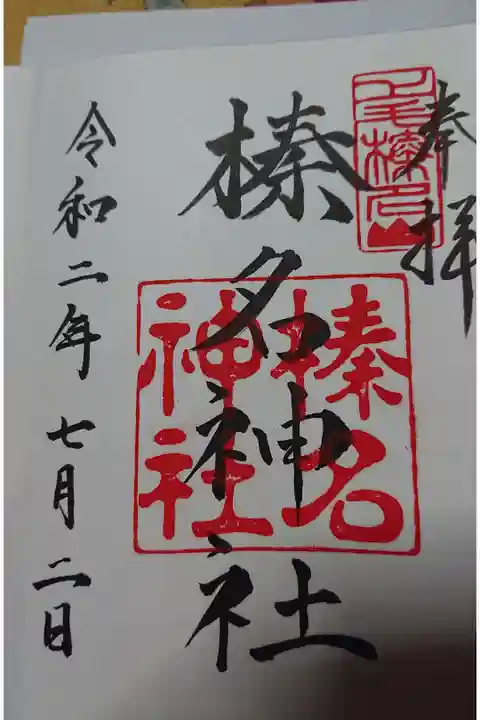 奉拝
上毛榛名山
榛名神社
榛名
神社
令和二年七月二日